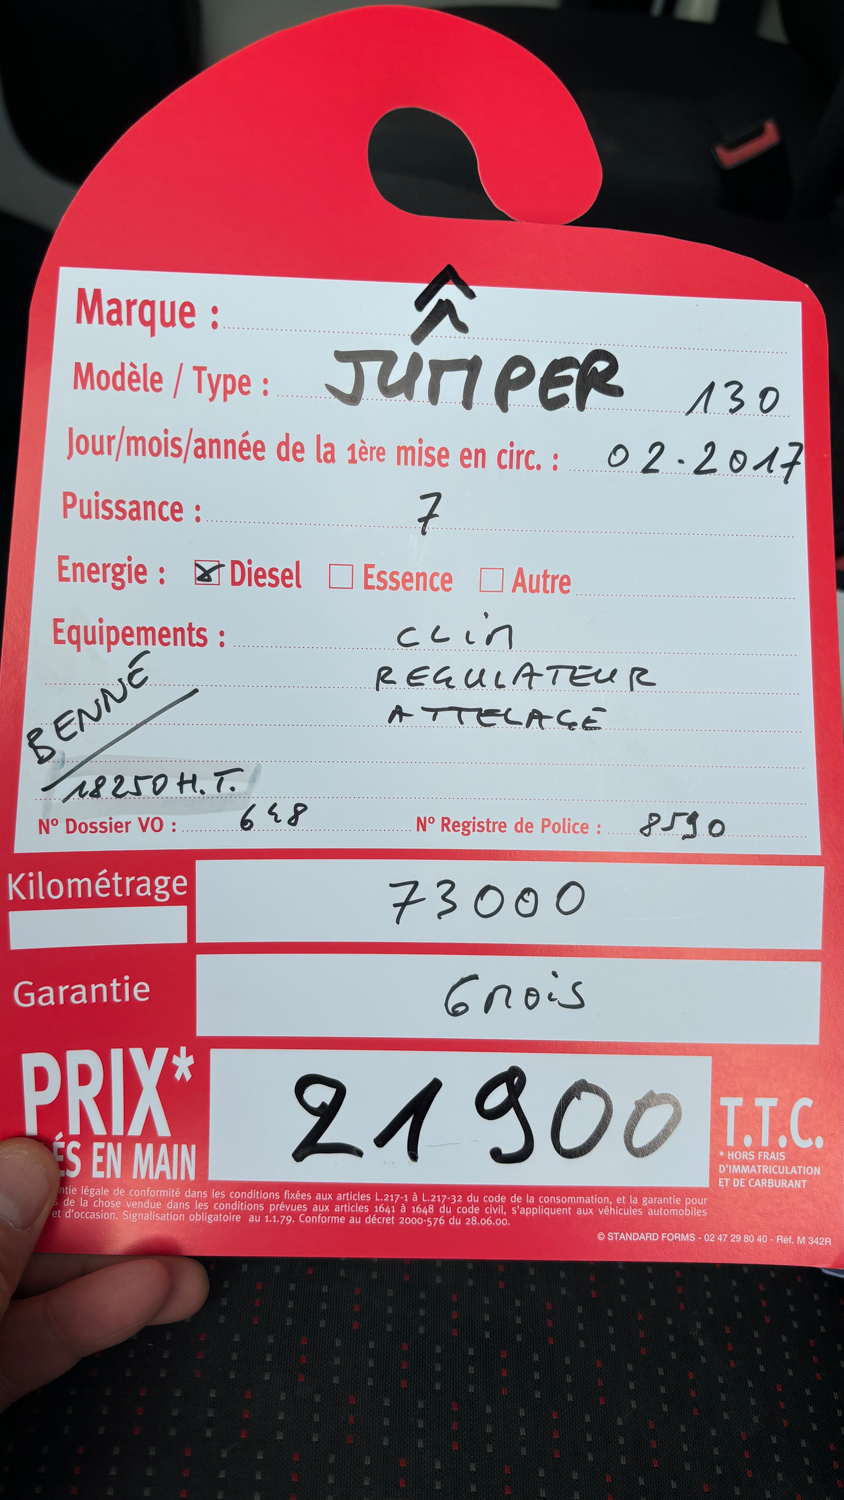 Marque :
Modèle / Type : JUMPER 130
Jour/mois/année de la 1ère mise en circ. : 02.2017
Puissance : 7
Energie : Diesel Essence Autre
Equipements : CLIM
REGULATEUR
ATTELAGE
BENNE
18250 H.T.
N° Dossier VO : 648 N° Registre de Police : 8590
Kilométrage 73000
Garantie 6 mois
PRIX* 21900 T.T.C.
ÉS EN MAIN
* HORS FRAIS
D'IMMATRICULATION
ET DE CARBURANT
ntie légale de conformité dans les conditions fixées aux articles L.217-1 à L.217-32 du code de la consommation, et la garantie pour
de la chose vendue dans les conditions prévues aux articles 1641 à 1648 du code civil, s'appliquent aux véhicules automobiles
et d'occasion. Signalisation obligatoire au 1.1.79. Conforme au décret 2000-576 du 28.06.00.
© STANDARD FORMS - 02 47 29 80 40 - Réf. M 342R